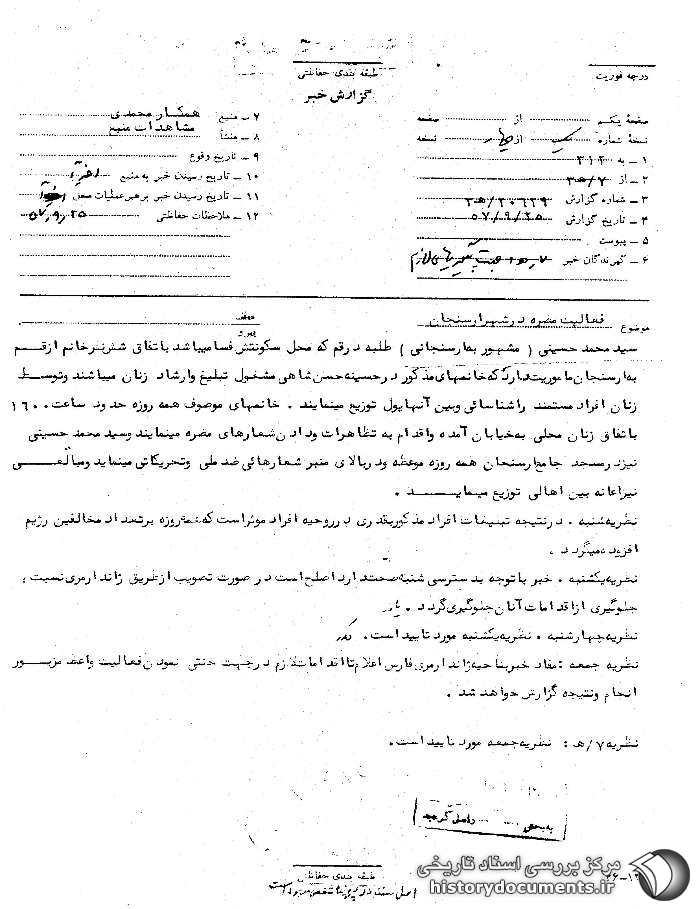 درجه فوریت
طبقه بندی حفاظتی
گزارش خبر
صفحهٔ یکم از صفحه
نسخهٔ شماره از نسخه
۱ – به ۳۱۲
۲ – از ۷/هـ
۳ – شماره گزارش
۴ – تاریخ گزارش ۵۷/۹/۲۵
۵ – پیوست
۶ – گیرندگان خبر
۷ – منبع همکار محمدی
۸ – منشأ مشاهدات منبع
۹ – تاریخ وقوع
۱۰ – تاریخ رسیدن خبر به منبع اخیراً
۱۱ – تاریخ رسیدن خبر برهبر عملیات محل
۱۲ – ملاحظات حفاظتی ۵۷/۹/۲۵
موضوع فعالیت مضره در شهر ارسنجان
سید محمد حسینی ( مشهور به ارسنجانی ) طلبه در قم که محل سکونتش فسا میباشد با تفاق شش نفر خانم از قم
به ارسنجان ماموریت دارد که خانمهای مذکور در حسینه حسن شاهی مشغول تبلیغ وارشاد زنان میباشند وتوسط
زنان افراد مستمند را شناسائی وبین آنها پول توزیع مینمایند . خانمهای موصوف همه روزه حدود ساعت ۱۶۰۰
با تفاق زنان محلی به خیابان آمده واقدام به تظاهرات ودادن شعارهای مضره مینمایند وسید محمد حسینی
نیز در مسجد جامع ارسنجان همه روزه موعظه ودر بالای منبر شعارهائی ضد ملی وتحریکاتی مینماید ومبالغی
نیز اعانه بین اهالی توزیع مینمایـــد .
نظریه شنبه . در نتیجه تبلیغات افراد مذکور بقدری در روحیه افراد موثر است که همه روزه بر تعداد مخالفین رژیم
افزوده میگردد .
نظریه یکشنبه . خبر با توجه بدسترسی شنبه صحت دارد اصلح است در صورت تصویب از طریق ژاندارمری نسبت به
جلوگیری از اقدامات آنان جلوگیری گردد .
نظریه چهارشنبه . نظریه یکشنبه مورد تایید است .
نظریه جمعه : مفاد خبر بناحیه ژاندارمری فارس اعلام تا اقدامات لازم در جهت خنثی نمودن فعالیت واعظ مزبـور
انجام ونتیجه گزارش خواهد شد .
نظریه ۷/هـ : نظریه جمعه مورد تایید است .
طبقه بندی حفاظتی
مرکز بررسی اسناد تاریخی
historydocuments.ir